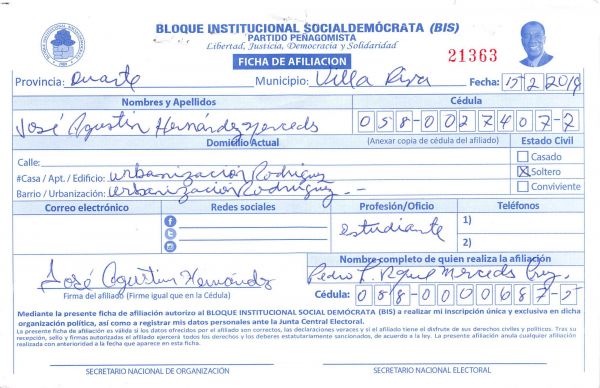 BLOQUE INSTITUCIONAL SOCIALDEMÓCRATA (BIS)
PARTIDO PEÑAGOMISTA
Libertad, Justicia, Democracia y Solidaridad
FICHA DE AFILIACION
21363
Provincia: Duarte Municipio: Villa Riva Fecha: 15/2/2019
Nombres y Apellidos Cédula
José Agustin Hernández Mercedes 058-0027407-7
Domicilio Actual (Anexar copia de cédula del afiliado) Estado Civil
Calle: Casado
#Casa / Apt. / Edificio: urbanización Rodriguez Soltero
Barrio / Urbanización: urbanización Rodriguez.- Conviviente
Correo electrónico Redes sociales Profesión/Oficio Teléfonos
estudiante 1)
2)
Nombre completo de quien realiza la afiliación
José Agustin Hernández Pedro Mercedes Cruz.
Firma del afiliado (Firme igual que en la Cédula) Cédula: 088-0000687-5
Mediante la presente ficha de afiliación autorizo al BLOQUE INSTITUCIONAL SOCIAL DEMÓCRATA (BIS) a realizar mi inscripción única y exclusiva en dicha
organización política, así como a registrar mis datos personales ante la Junta Central Electoral.
La presente ficha de afiliación es válida si los datos ofrecidos por el afiliado son correctos, las declaraciones veraces y si el afiliado tiene el disfrute de sus derechos civiles y políticos. Tras su
recepción, sello y firmas autorizadas el afiliado ejercerá todos los derechos y los deberes estatutariamente sancionados, de acuerdo a la ley. La presente afiliación anula cualquier afiliación
realizada con anterioridad a la fecha que aparece en esta ficha.
SECRETARIO NACIONAL DE ORGANIZACIÓN SECRETARIO NACIONAL ELECTORAL